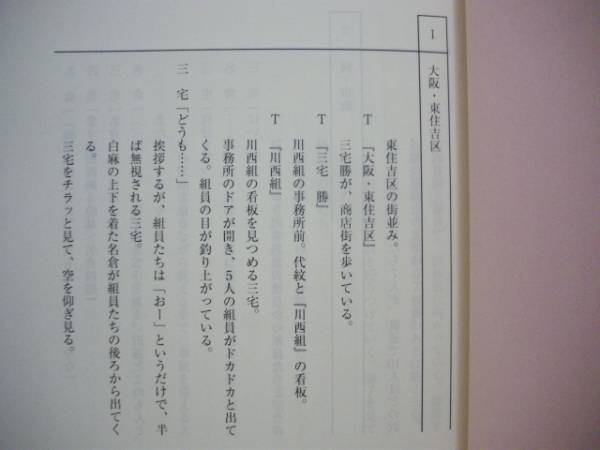 1 大阪・東住吉区
東住吉区の街並み。
T 『大阪・東住吉区』
三宅勝が、商店街を歩いている。
T 『三宅 勝』
川西組の事務所前。代紋と『川西組』の看板。
T 『川西組』
川西組の看板を見つめる三宅。
事務所のドアが開き、5人の組員がドカドカと出て
くる。組員の目が釣り上がっている。
三 宅「どうも……」
挨拶するが、組員たちは「おー」というだけで、半
ば無視される三宅。
白麻の上下を着た名倉が組員たちの後ろから出てく
る。
三宅をチラッと見て、空を仰ぎ見る。